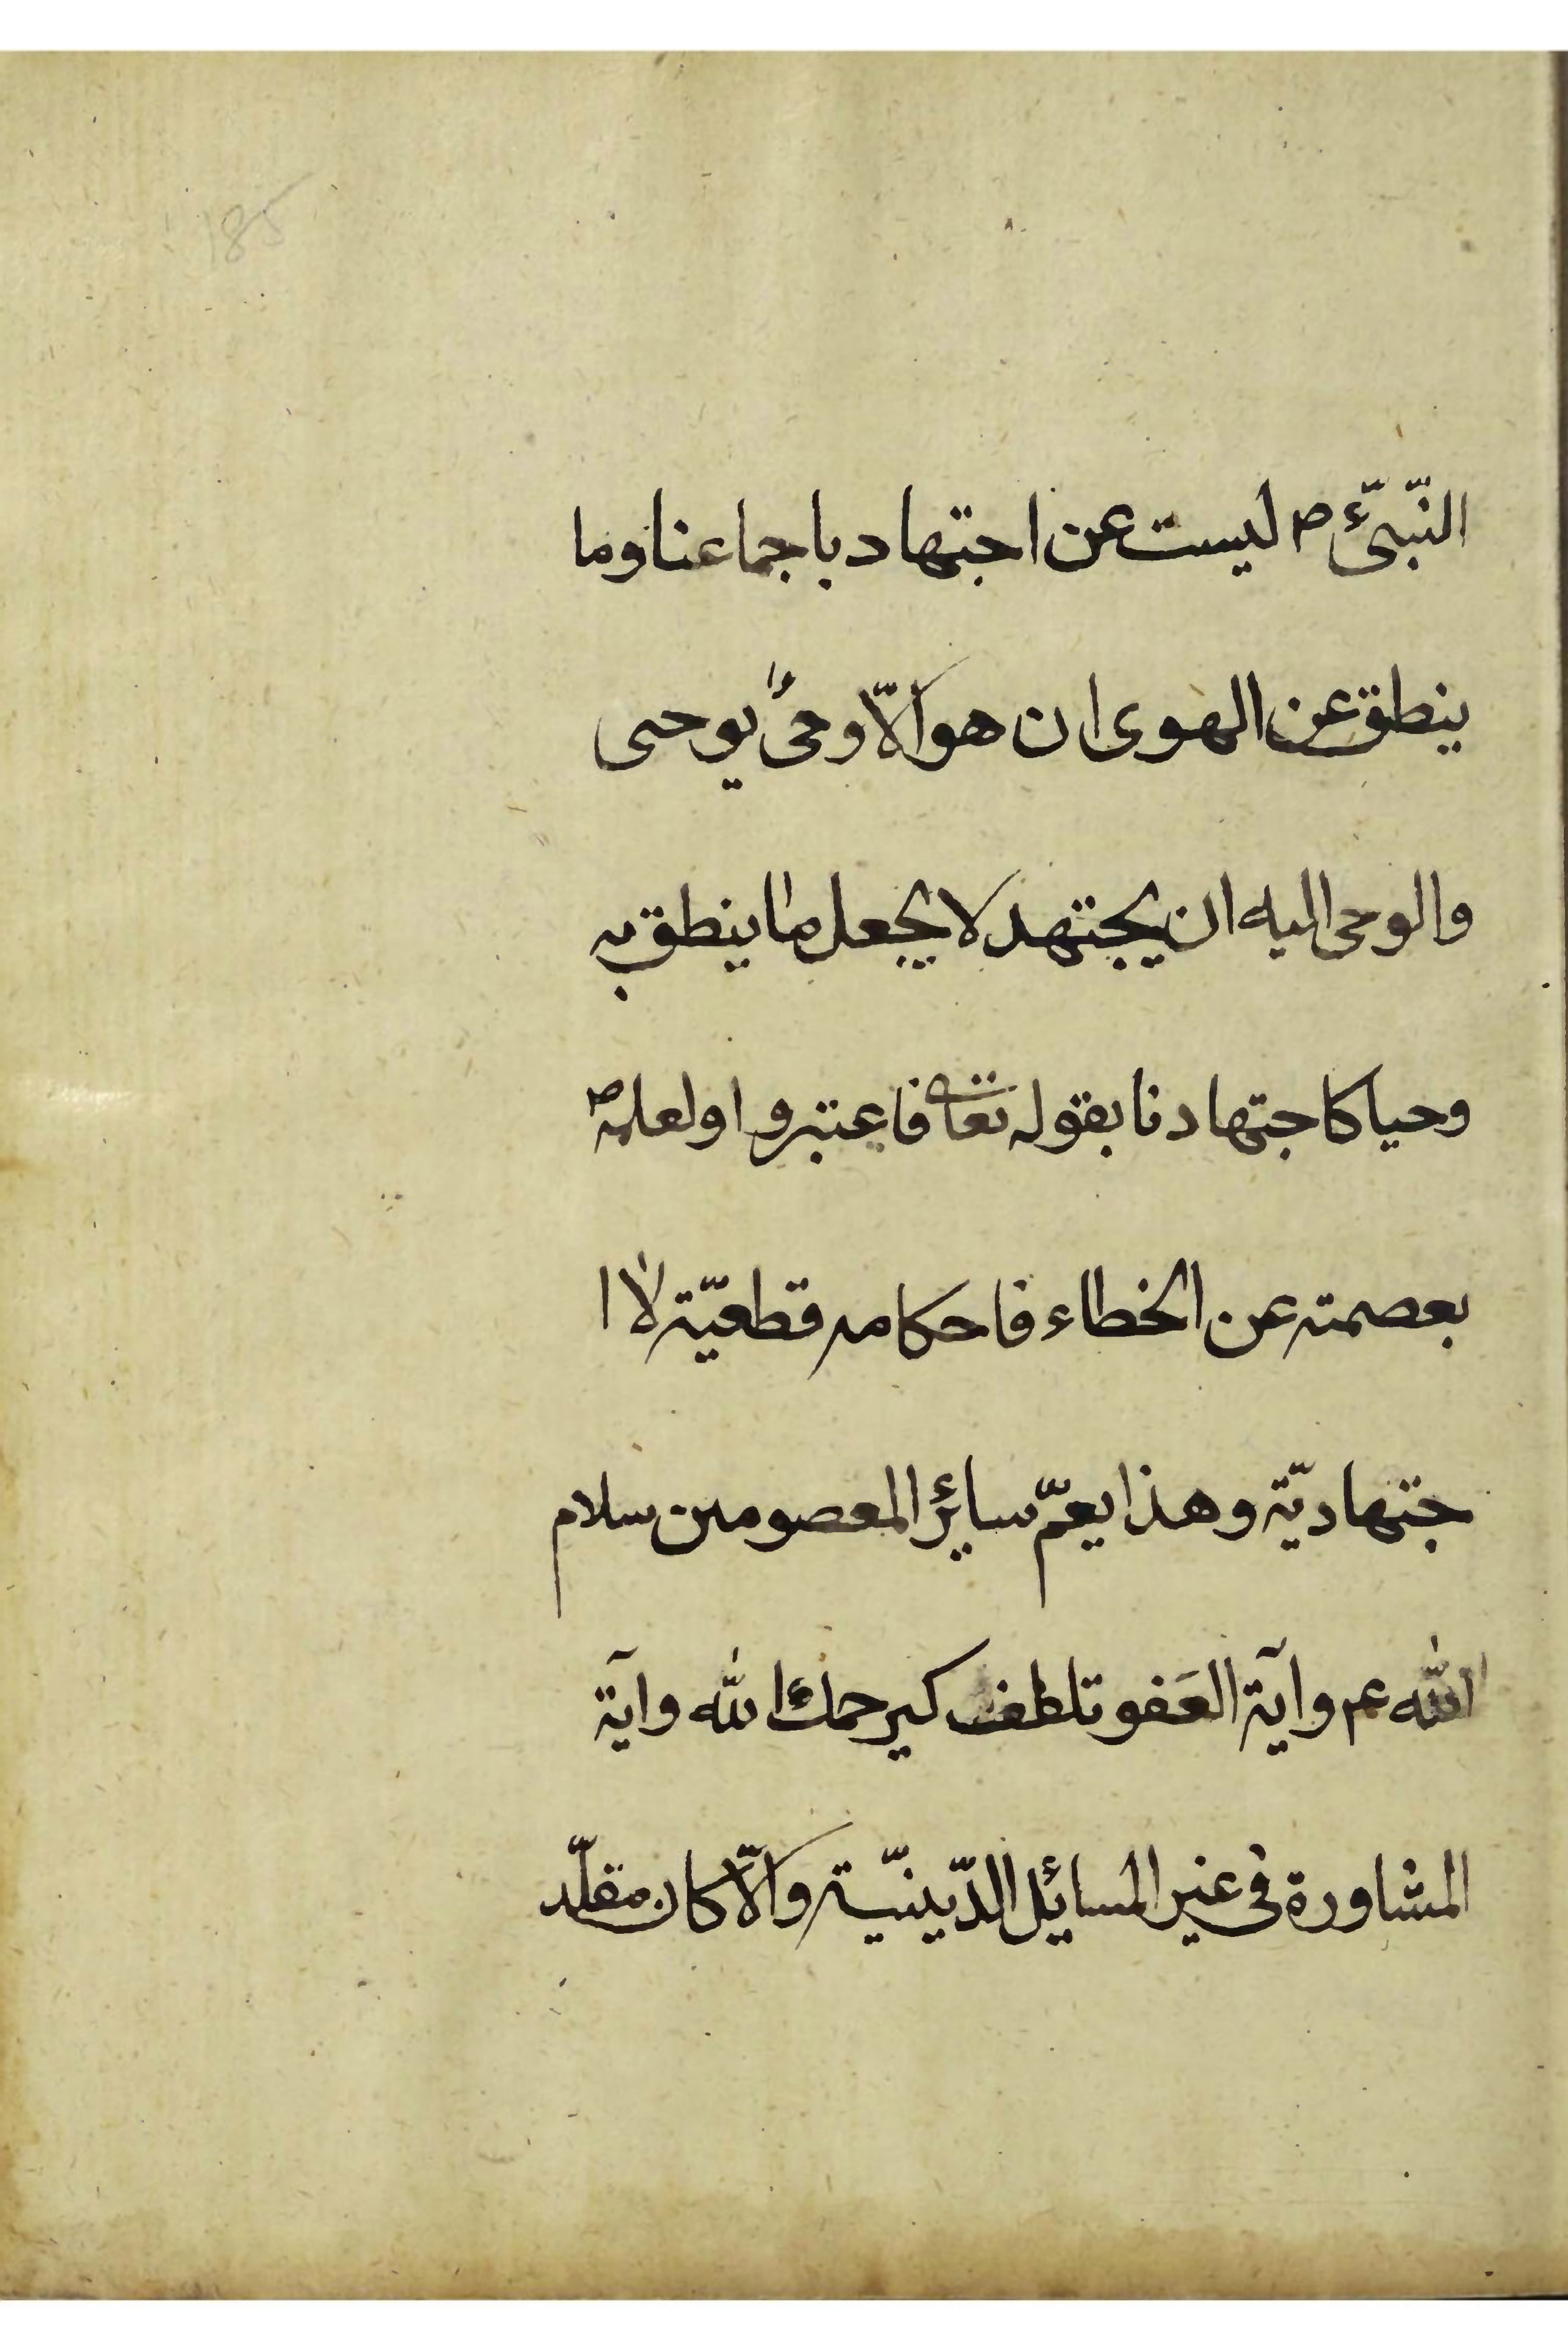 185
النّبىّء ص ليست عن اجتهاد باجماعنا وما
ينطق عن الهوى ان هو الّا وحىٌ يوحى
والوحى اليه ان يجتهد لا يجعل ما ينطق به
وحيا كاجتهادنا بقوله تعالى فاعتبروا ولعلمه ص
بعصمته عن الخطاء فاحكامه قطعيّة لا ا
جتهاديّة وهذا يعمّ سائر المعصومين سلام
الله عم وآية العَفو تلطف كيرحمك الله وآية
المشاورة فى غير المسائل الدّينيّة والّا كان مقلّد